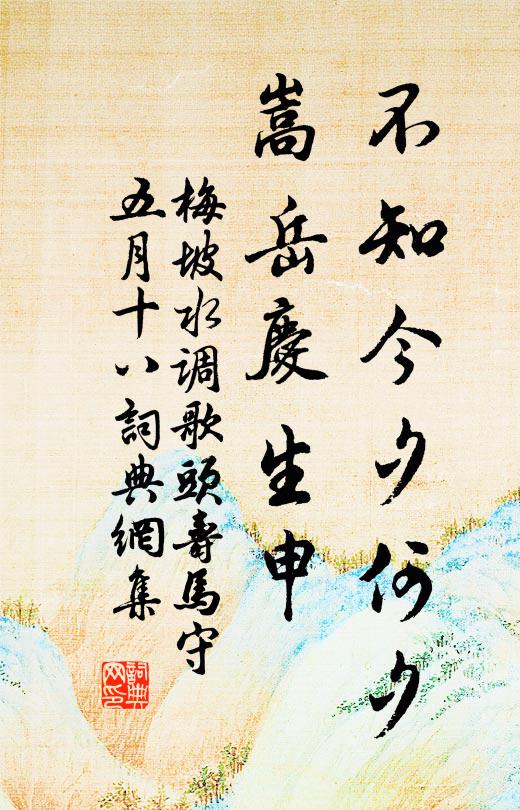 不知今夕何夕
嵩岳慶生申
梅坡水调歌頭壽馬守
五月十八詞典網集
詞典网印